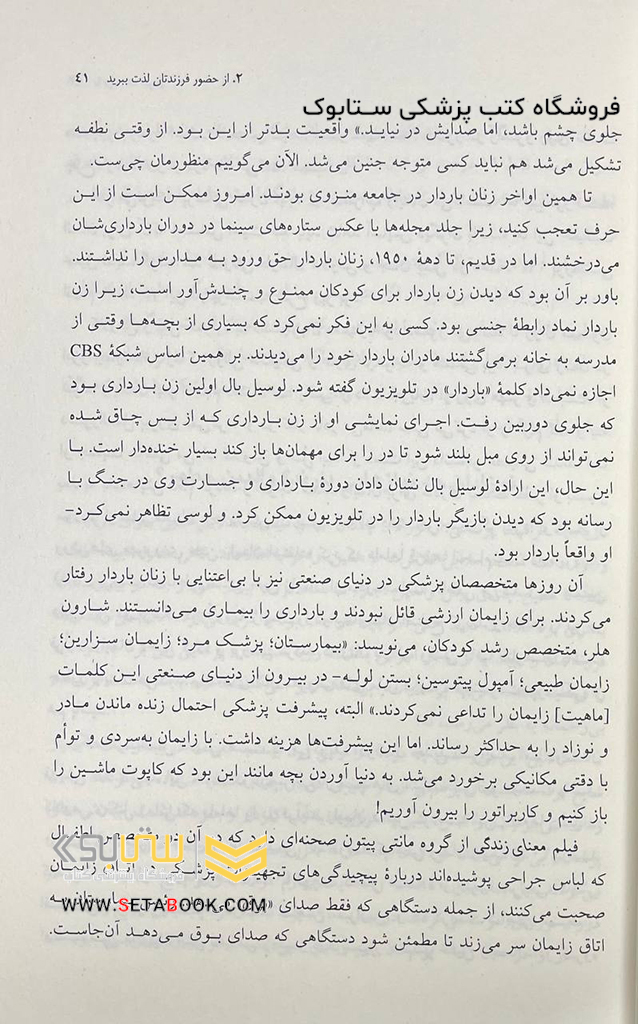 ۲. از حضور فرزندتان لذت ببرید ۴۱
فروشگاه کتب پزشکی ستابوک
جلوی چشم باشد، اما صدایش در نیاید.» واقعیت بدتر از این بود. از وقتی نطفه
تشکیل می‌شد هم نباید کسی متوجه جنین می‌شد. الآن می‌گوییم منظورمان چی‌ست.
تا همین اواخر زنان باردار در جامعه منزوی بودند. امروز ممکن است از این
حرف تعجب کنید، زیرا جلد مجله‌ها با عکس ستاره‌های سینما در دوران بارداری‌شان
می‌درخشند. اما در قدیم، تا دههٔ ۱۹۵۰، زنان باردار حق ورود به مدارس را نداشتند.
باور بر آن بود که دیدن زن باردار برای کودکان ممنوع و چندش‌آور است، زیرا زن
باردار نماد رابطهٔ جنسی بود. کسی به این فکر نمی‌کرد که بسیاری از بچه‌ها وقتی از
مدرسه به خانه برمی‌گشتند مادران باردار خود را می‌دیدند. بر همین اساس شبکهٔ CBS
اجازه نمی‌داد کلمهٔ «باردار» در تلویزیون گفته شود. لوسیل بال اولین زن بارداری بود
که جلوی دوربین رفت. اجرای نمایشی او از زن بارداری که از بس چاق شده
نمی‌تواند از روی مبل بلند شود تا در را برای مهمان‌ها باز کند بسیار خنده‌دار است. با
این حال، این ارادهٔ لوسیل بال نشان دادن دورهٔ بارداری و جسارت وی در جنگ با
رسانه بود که دیدن بازیگر باردار را در تلویزیون ممکن کرد. و لوسی تظاهر نمی‌کرد-
او واقعاً باردار بود.
آن روزها متخصصان پزشکی در دنیای صنعتی نیز با بی‌اعتنایی با زنان باردار رفتار
می‌کردند. برای زایمان ارزشی قائل نبودند و بارداری را بیماری می‌دانستند. شارون
هلر، متخصص رشد کودکان، می‌نویسد: «بیمارستان؛ پزشک مرد؛ زایمان سزارین؛
زایمان طبیعی؛ آمپول پیتوسین؛ بستن لوله- در بیرون از دنیای صنعتی این کلمات
[ماهیت] زایمان را تداعی نمی‌کردند.» البته، پیشرفت پزشکی احتمال زنده ماندن مادر
و نوزاد را به حداکثر رساند. اما این پیشرفت‌ها هزینه داشت. با زایمان به‌سردی و توأم
با دقتی مکانیکی برخورد می‌شد. به دنیا آوردن بچه مانند این بود که کاپوت ماشین را
باز کنیم و کاربراتور را بیرون آوریم!
فیلم معنای زندگی از گروه مانتی پیتون صحنه‌ای دارد که در آن دو
که لباس جراحی پوشیده‌اند دربارهٔ پیچیدگی‌های پزشکی زایمان
صحبت می‌کنند، از جمله دستگاهی که فقط صدای
اتاق زایمان سر می‌زند تا مطمئن شود دستگاهی که صدای بوق می‌دهد آن‌جاست.
WWW.SETABOOK.COM